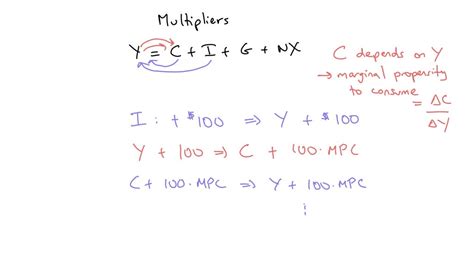 Multipliers
Y = C + I + G + NX
C depends on Y
→ marginal propensity
to consume
= ΔC
ΔY
I : + $100 ⇒ Y + $100
Y + 100 ⇒ C + 100·MPC
C + 100·MPC ⇒ Y + 100·MPC